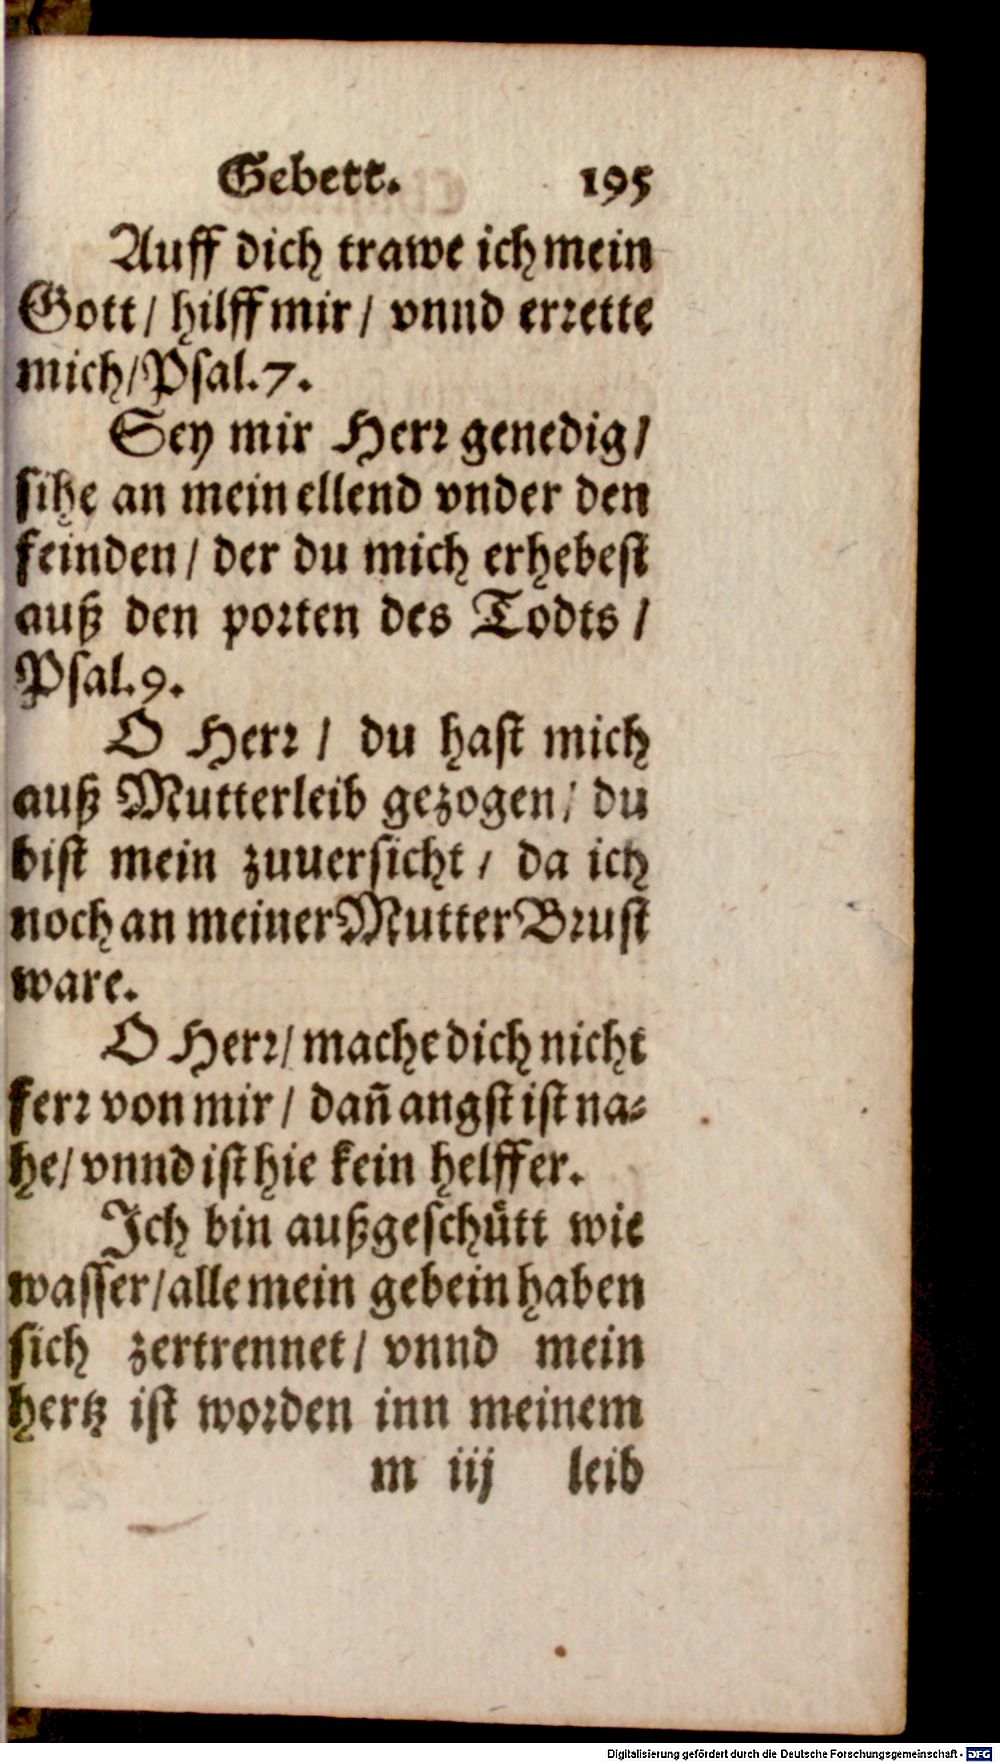 Gebett. 195
Auff dich trawe ich mein
Gott / hilff mir / vnnd erꝛette
mich / Psal. 7.
Sey mir Herꝛ genedig /
sihe an mein ellend vnder den
feinden / der du mich erhebest
auß den poꝛten des Todts /
Psal. 9.
O Herꝛ / du hast mich
auß Mutterleib gezogen / du
bist mein zuuersicht / da ich
noch an meiner Mutter Bꝛust
ware.
O Herꝛ / mache dich nicht
ferꝛ von mir / dañ angst ist na⸗
he / vnnd ist hie kein helffer.
Ich bin außgeschütt wie
wasser / alle mein gebein haben
sich zertrennet / vnnd mein
hertz ist woꝛden inn meinem
m iij leib
Digitalisierung gefördert durch die Deutsche Forschungsgemeinschaft - DFG